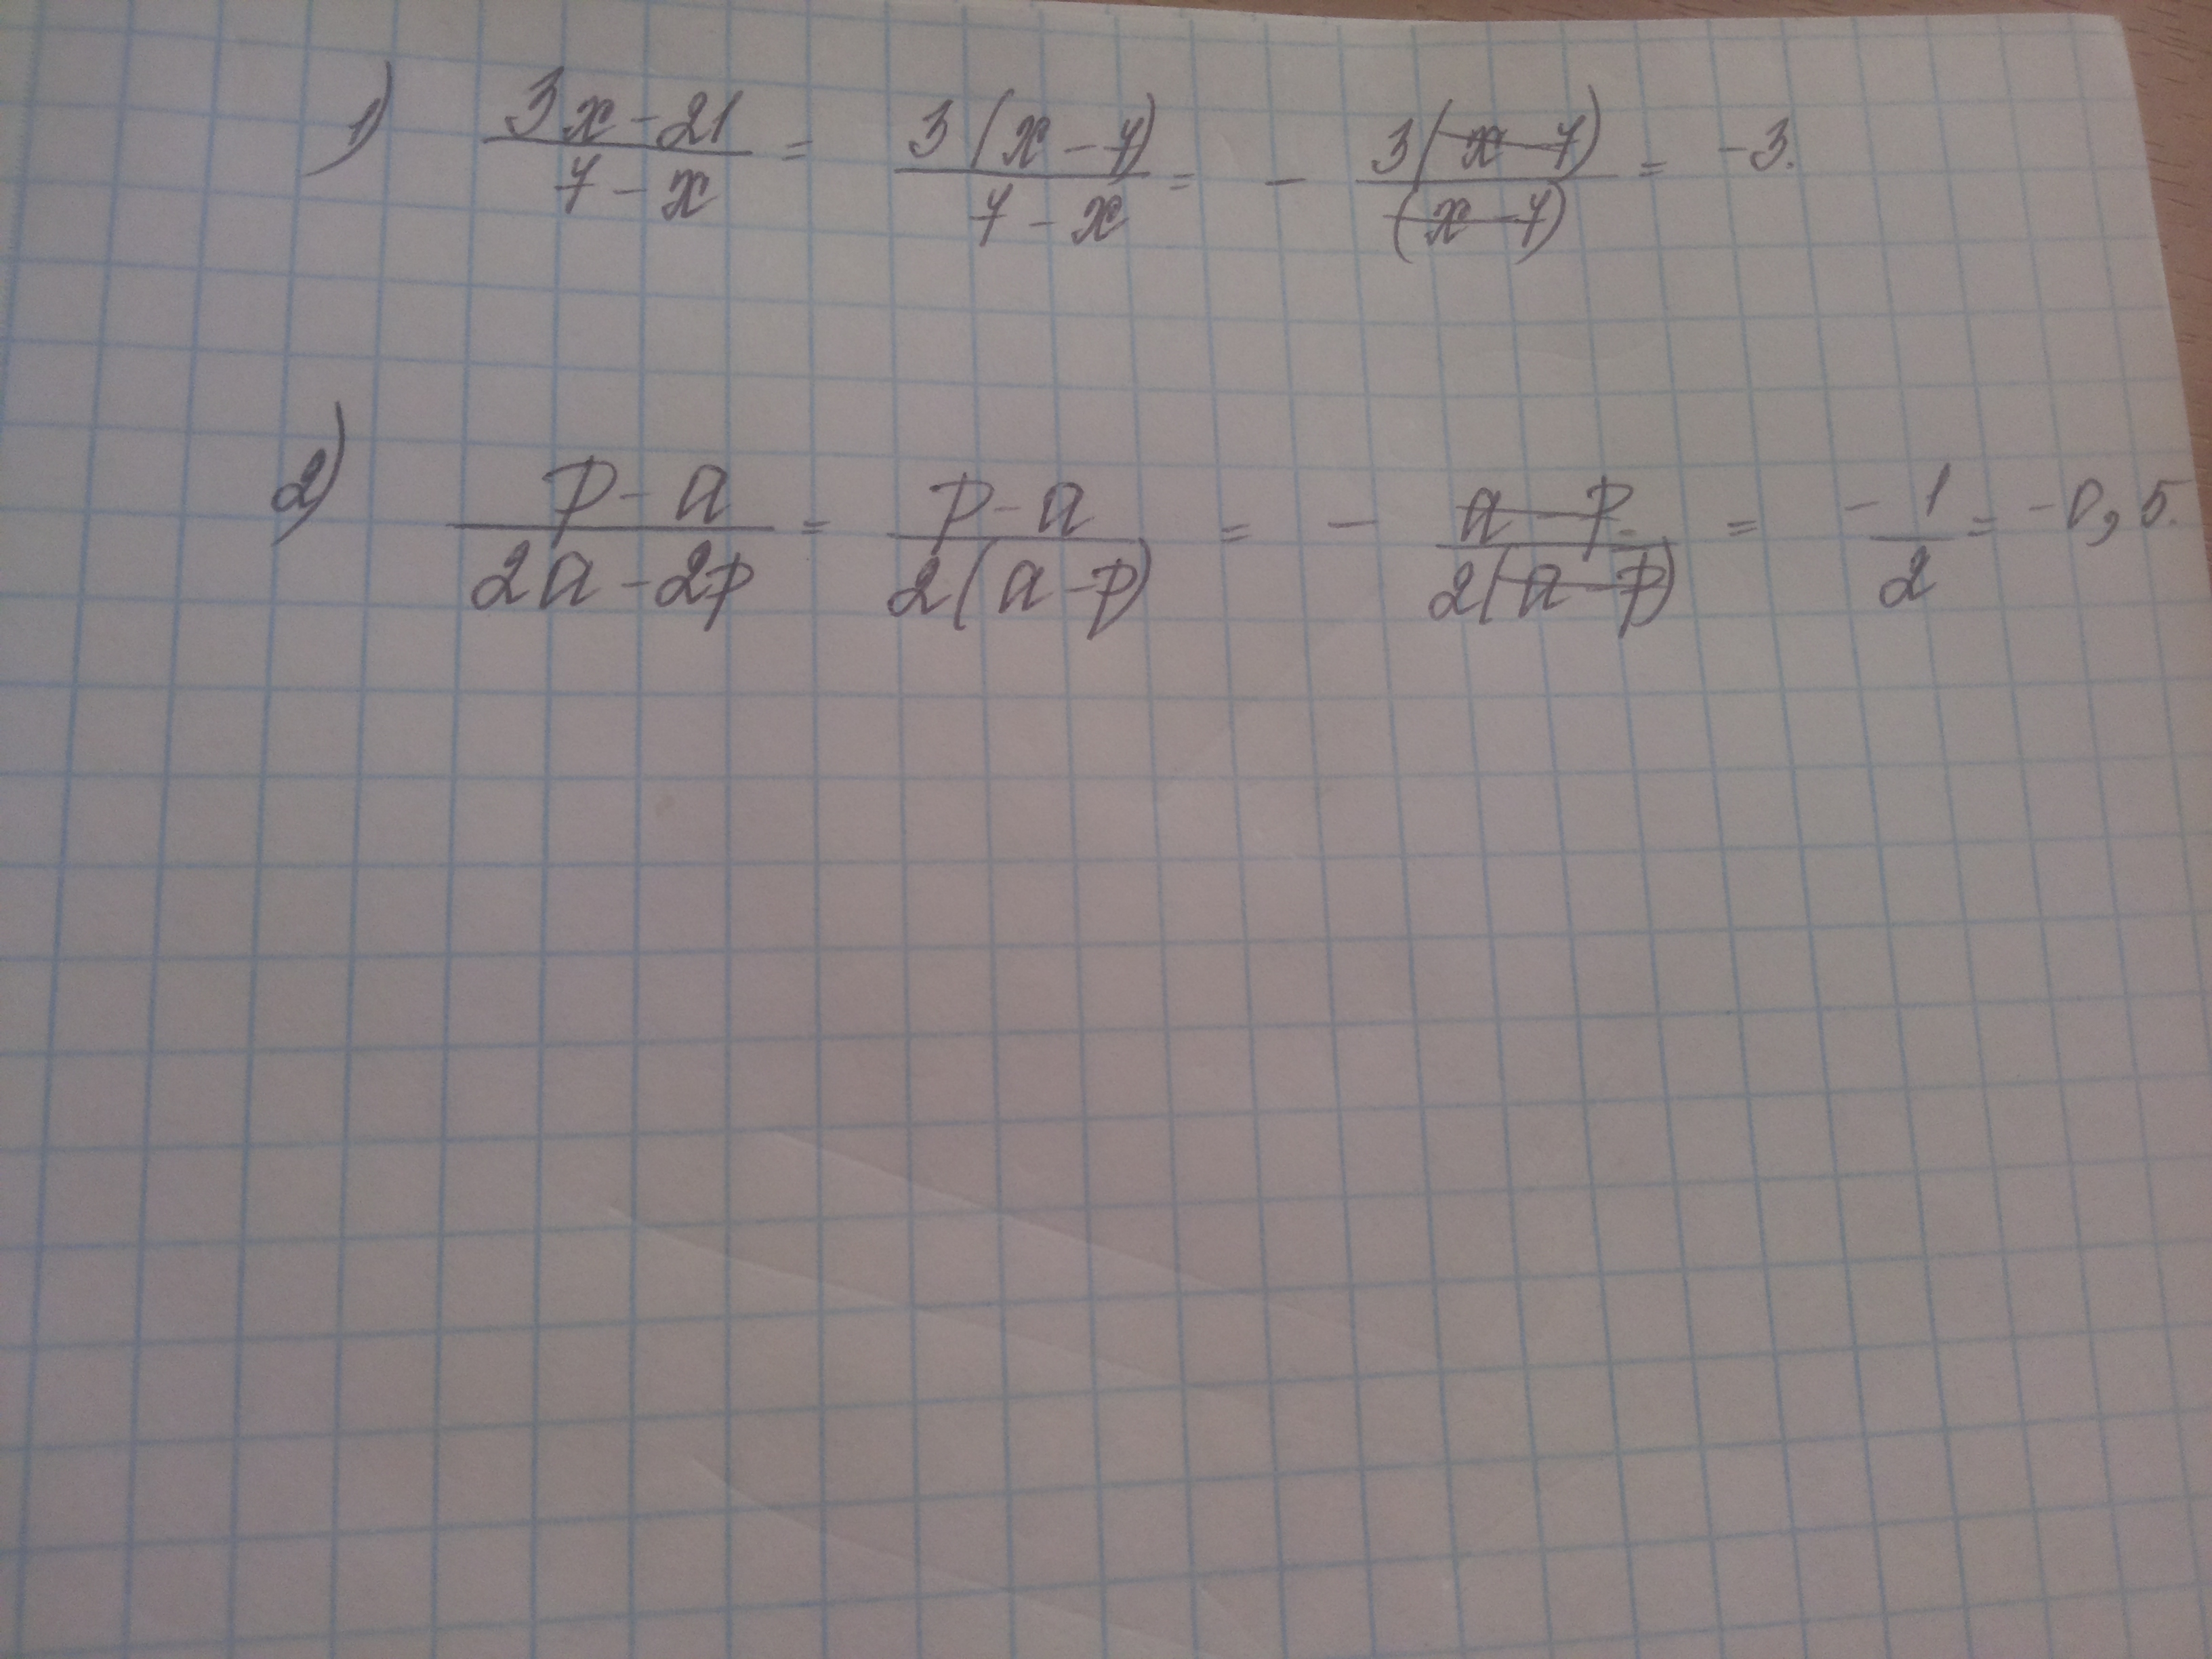 1) (3x-21)/(7-x) = 3(x-7)/(7-x) = - 3(x-7)/(x-7) = -3.
2) (p-a)/(2a-2p) = (p-a)/(2(a-p)) = - (a-p)/(2(a-p)) = -1/2 = -0,5.